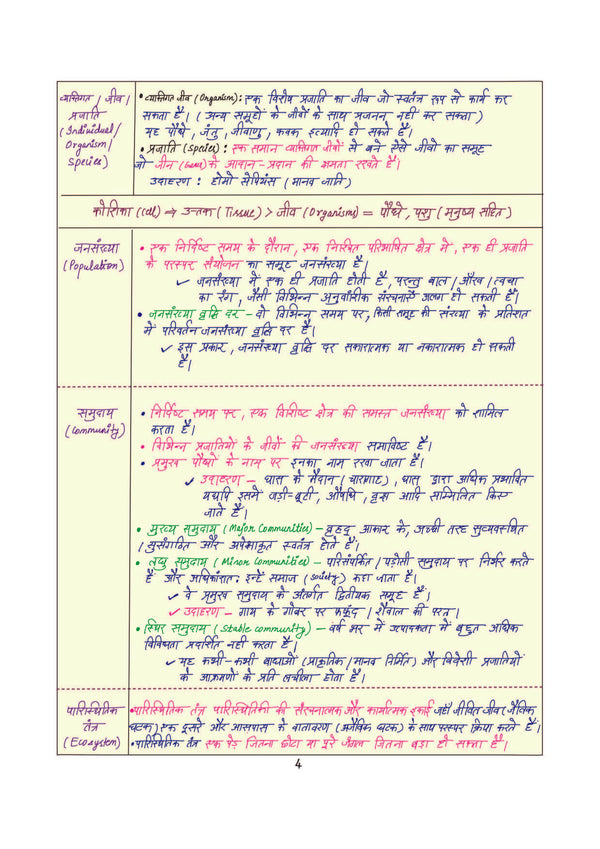 व्यक्तिगत / जीव / प्रजाति (Individual / Organism / Species)
• व्यक्तिगत जीव (Organism): एक विशेष प्रजाति का जीव जो स्वतंत्र रूप से कार्य कर
सकता है। (अन्य समूहों के जीवों के साथ प्रजनन नहीं कर सकता)
यह पौधे, जंतु, जीवाणु, कवक इत्यादि हो सकते हैं।
• प्रजाति (Species): एक समान व्यक्तिगत जीवों से बने ऐसे जीवों का समूह
जो जीन (Gene) के आदान-प्रदान की क्षमता रखते हैं।
उदाहरण : होमो सेपियंस (मानव जाति)
कोशिका (Cell) ⇒ उत्तक (Tissue) > जीव (Organisms) = पौधे, पशु (मनुष्य सहित)
जनसंख्या (Population)
• एक निर्दिष्ट समय के दौरान, एक निश्चित परिभाषित क्षेत्र में, एक ही प्रजाति
के परस्पर संयोजन का समूह जनसंख्या है।
✓ जनसंख्या में एक ही प्रजाति होती है, परन्तु बाल / आँख / त्वचा
का रंग, जैसी विभिन्न अनुवांशिक संरचनाएँ अलग हो सकती हैं।
• जनसंख्या वृद्धि दर - दो विभिन्न समय पर, किसी समूह की संख्या के प्रतिशत
में परिवर्तन जनसंख्या वृद्धि दर है।
✓ इस प्रकार, जनसंख्या वृद्धि दर सकारात्मक या नकारात्मक हो सकती
है।
समुदाय (Community)
• निर्दिष्ट समय पर, एक विशिष्ट क्षेत्र की समस्त जनसंख्या को शामिल
करता है।
• विभिन्न प्रजातियों के जीवों की जनसंख्या समाविष्ट है।
• प्रमुख पौधों के नाम पर इनका नाम रखा जाता है।
✓ उदाहरण - घास के मैदान (चारागाह), घास द्वारा अधिक प्रभावित
यद्यपि इसमें जड़ी-बूटी, औषधि, वृक्ष आदि सम्मिलित किए
जाते हैं।
• मुख्य समुदाय (Major Communities) - वृहद् आकार के, अच्छी तरह सुव्यवस्थित
/ सुसंगठित और अपेक्षाकृत स्वतंत्र होते हैं।
• लघु समुदाय (Minor Communities) - पारिसंपर्कित / पड़ोसी समुदाय पर निर्भर करते
हैं और अधिकांशत: इन्हें समाज (Society) कहा जाता है।
✓ वे प्रमुख समुदाय के अंतर्गत द्वितीयक समूह हैं।
✓ उदाहरण - गाय के गोबर पर फफूंद / शैवाल की परत।
• स्थिर समुदाय (Stable Community) - वर्ष भर में उत्पादकता में बहुत अधिक
विविधता प्रदर्शित नहीं करता है।
✓ यह कभी-कभी बाधाओं (प्राकृतिक / मानव निर्मित) और विदेशी प्रजातियों
के आक्रमणों के प्रति लचीला होता है।
पारिस्थितिक तंत्र (Ecosystem)
• पारिस्थितिक तंत्र पारिस्थितिकी की संरचनात्मक और कार्यात्मक इकाई जहाँ जीवित जीव (जैविक
घटक) एक दूसरे और आसपास के वातावरण (अजैविक घटक) के साथ परस्पर क्रिया करते हैं।
• पारिस्थितिक तंत्र एक पेड़ जितना छोटा या पूरे जंगल जितना बड़ा हो सकता है।
4